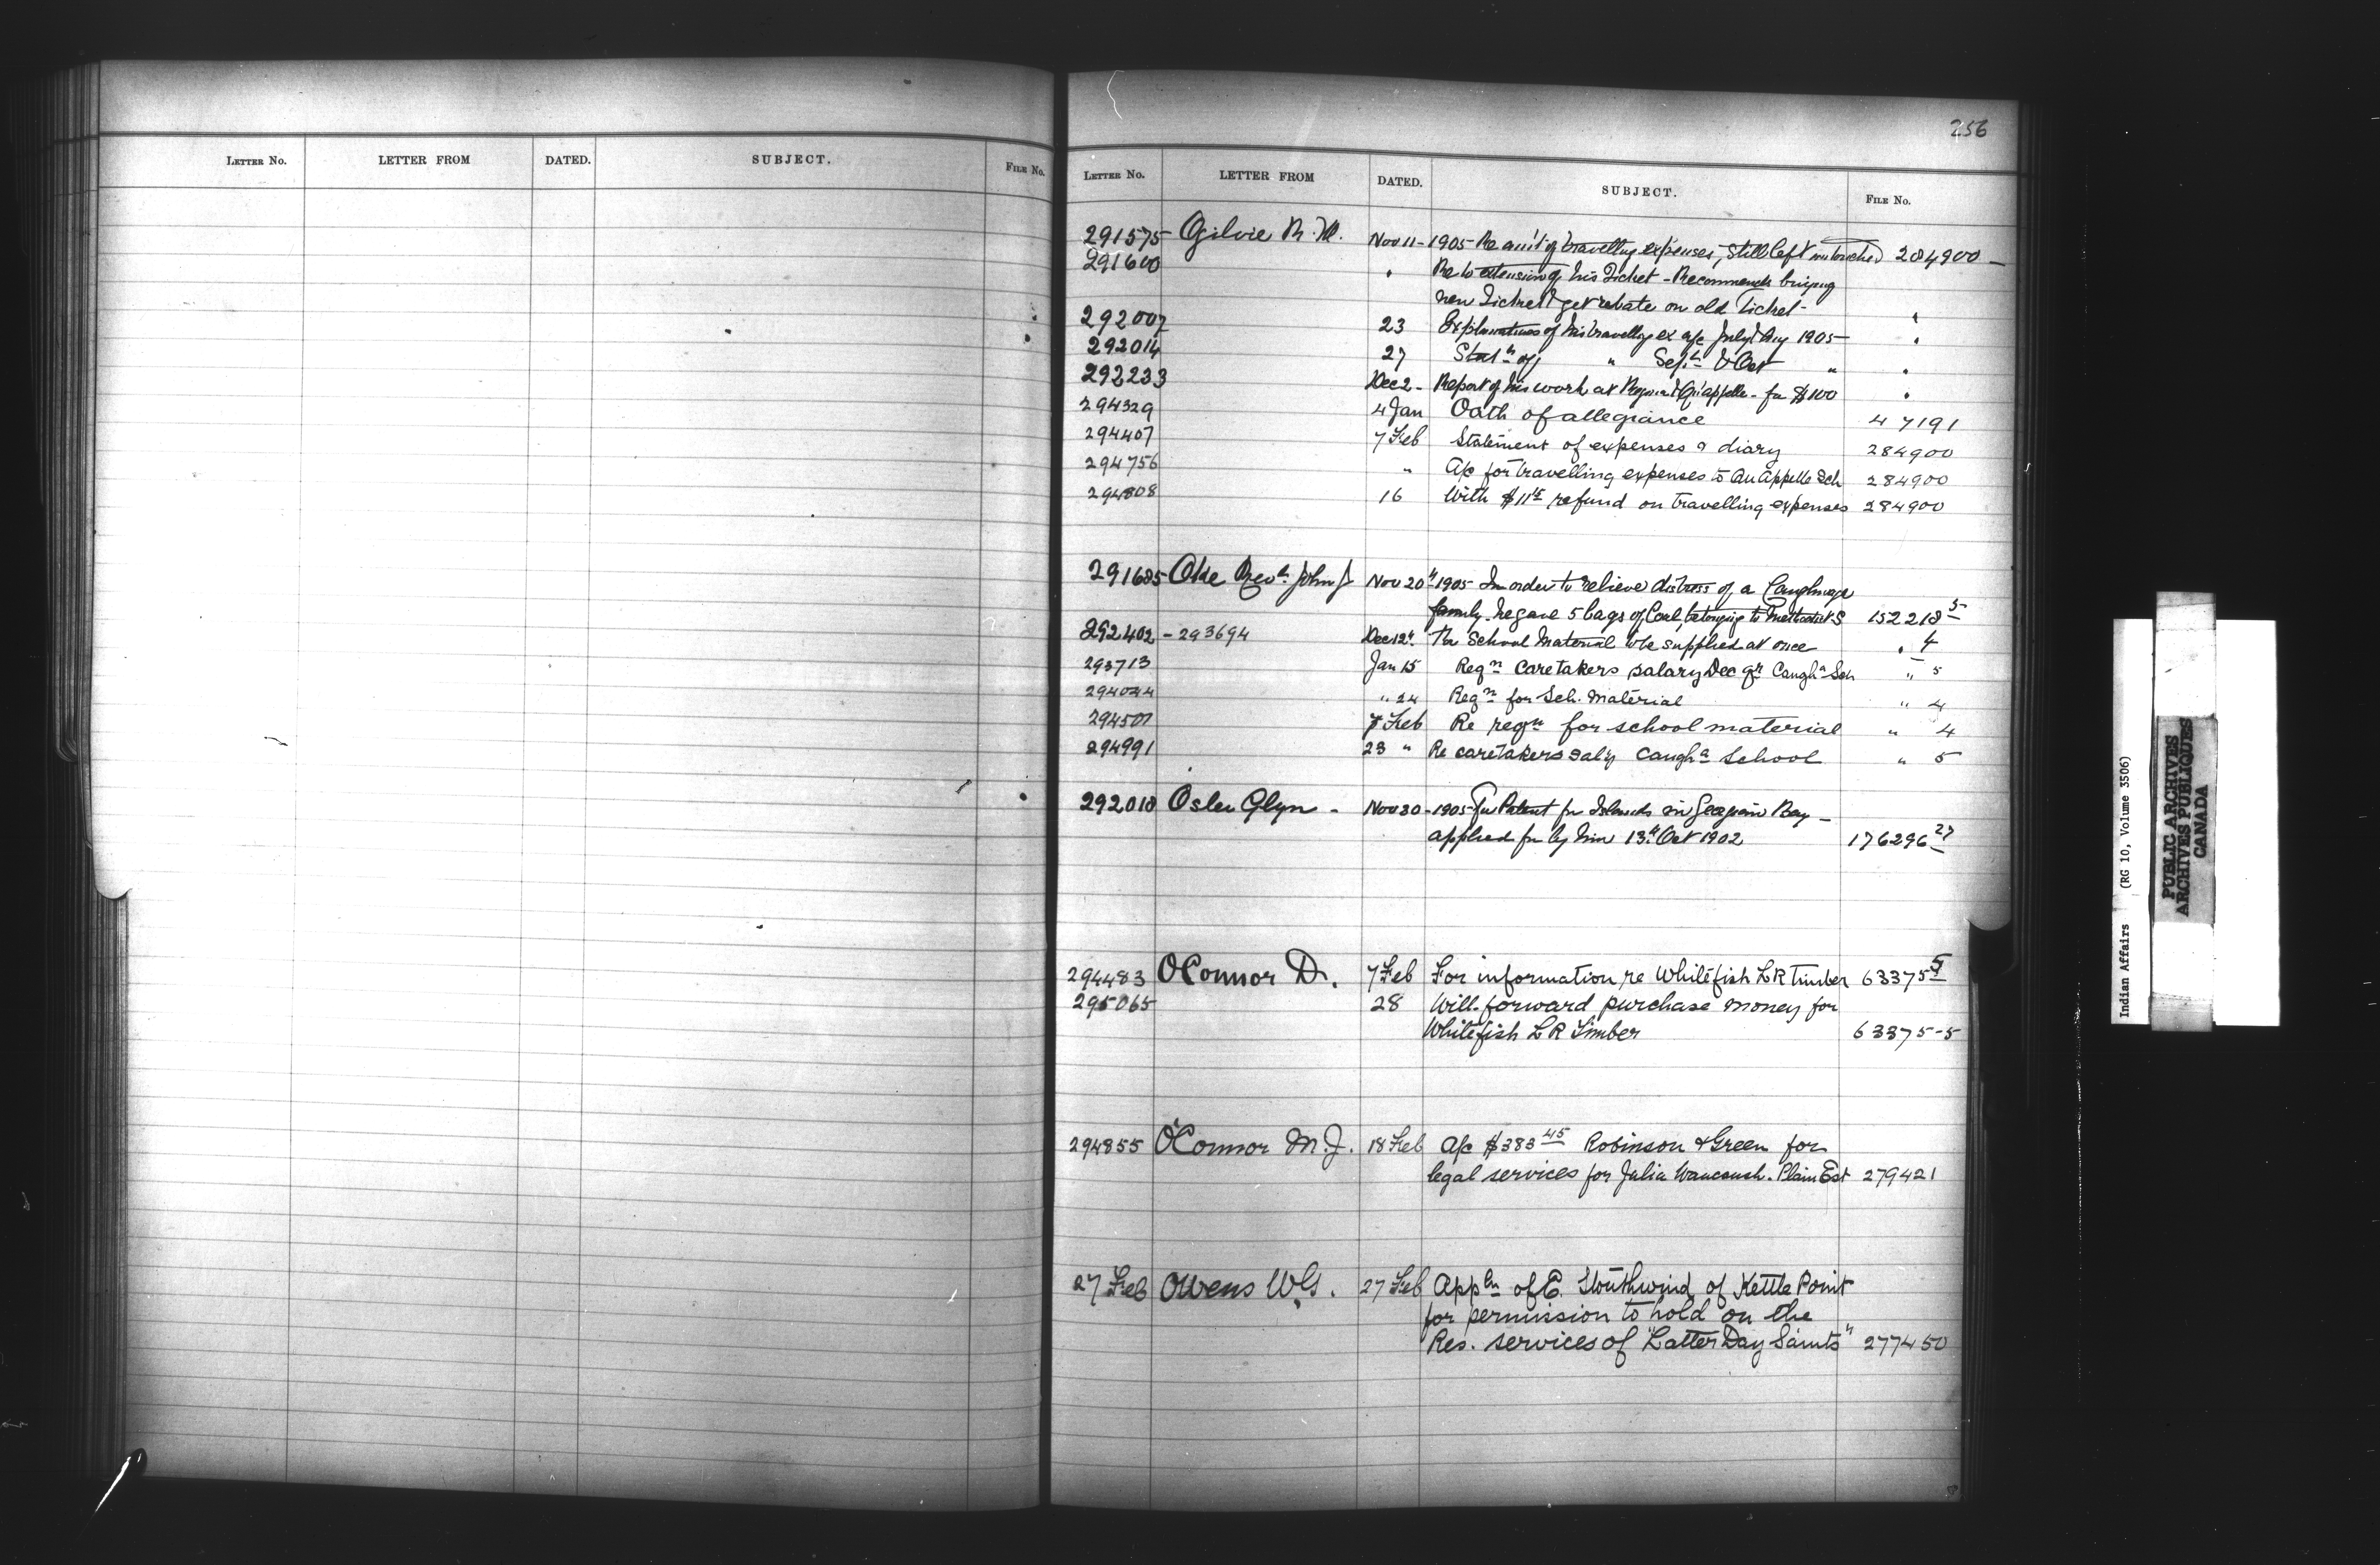 256
LETTER No. LETTER FROM DATED. SUBJECT. FILE No.
LETTER No. LETTER FROM DATED. SUBJECT. FILE No.
291575 Ogilvie R. M. Nov 11 - 1905 - Re am't of travelling expenses, still left untouched 284900 -
291600 " Re to extension of his Ticket - Recommends buying
new Ticket & get rebate on old Ticket - "
292007 23 Explanations of his travelling ex a/c July & Aug 1905 - "
292014 27 Stat'n of " Sept & Oct " "
292233 Dec 2 - Report of his work at Regina & Qu'appelle - for $100 "
294329 4 Jan Oath of allegiance 47191
294407 7 Feb Statement of expenses & diary 284900
294756 " A/c for travelling expenses to Qu Appelle Sch 284900
294808 16 With $11 refund on travelling expenses 284900
291685 Oke Rev. John J Nov 20th 1905 - In order to relieve distress of a Caughnawaga
family. he gave 5 bags of Coal, belonging to Methodist S 152218 5
292402 - 293694 Dec 12th The School Material to be supplied at once " 4
293713 Jan 15 Reqn caretakers salary Dec qr Caugha Sch " 5
294044 " 24 Reqn for Sch. material " 4
294507 7 Feb Re reqn for school material " 4
294991 23 " Re caretakers saly Caugha School " 5
292018 Osler Glyn - Nov 30 - 1905 - For Patent for Islands in Georgian Bay -
applied for by him 13th Oct 1902 176296 27
294483 O'Connor D. 7 Feb For information re Whitefish L R Timber 63375 5
295065 28 Will forward purchase money for
Whitefish L R Timber 63375-5
294855 O'Connor M. J. 18 Feb a/c $383 45 Robinson & Green for
legal services for Julia Plain Est 279421
27 Feb Owens W. G. 27 Feb Appln of E. Southwind of Kettle Point
for permission to hold on the
Res. services of "Latter Day Saints" 277450
Indian Affairs (RG 10, Volume 3506)
PUBLIC ARCHIVES
ARCHIVES PUBLIQUES
CANADA